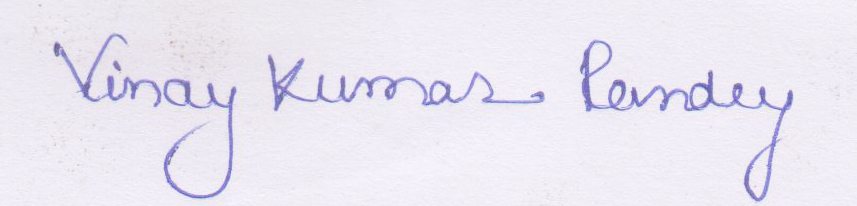 Vinay Kumar Pandey